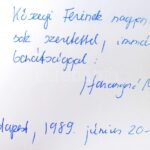 Kőszegi Ferinek nagyon
sok szeretettel, immár
barátsággal:
Budapest, 1989. június 20-